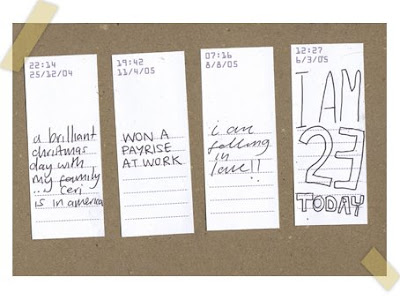 22:14
25/12/04
a brilliant
christmas
day with
my family
... Ceri
is in america
19:42
11/4/05
WON A
PAYRISE
AT WORK
07:16
8/8/05
i am
falling
in
love!!
12:27
6/3/05
I AM
23
TODAY